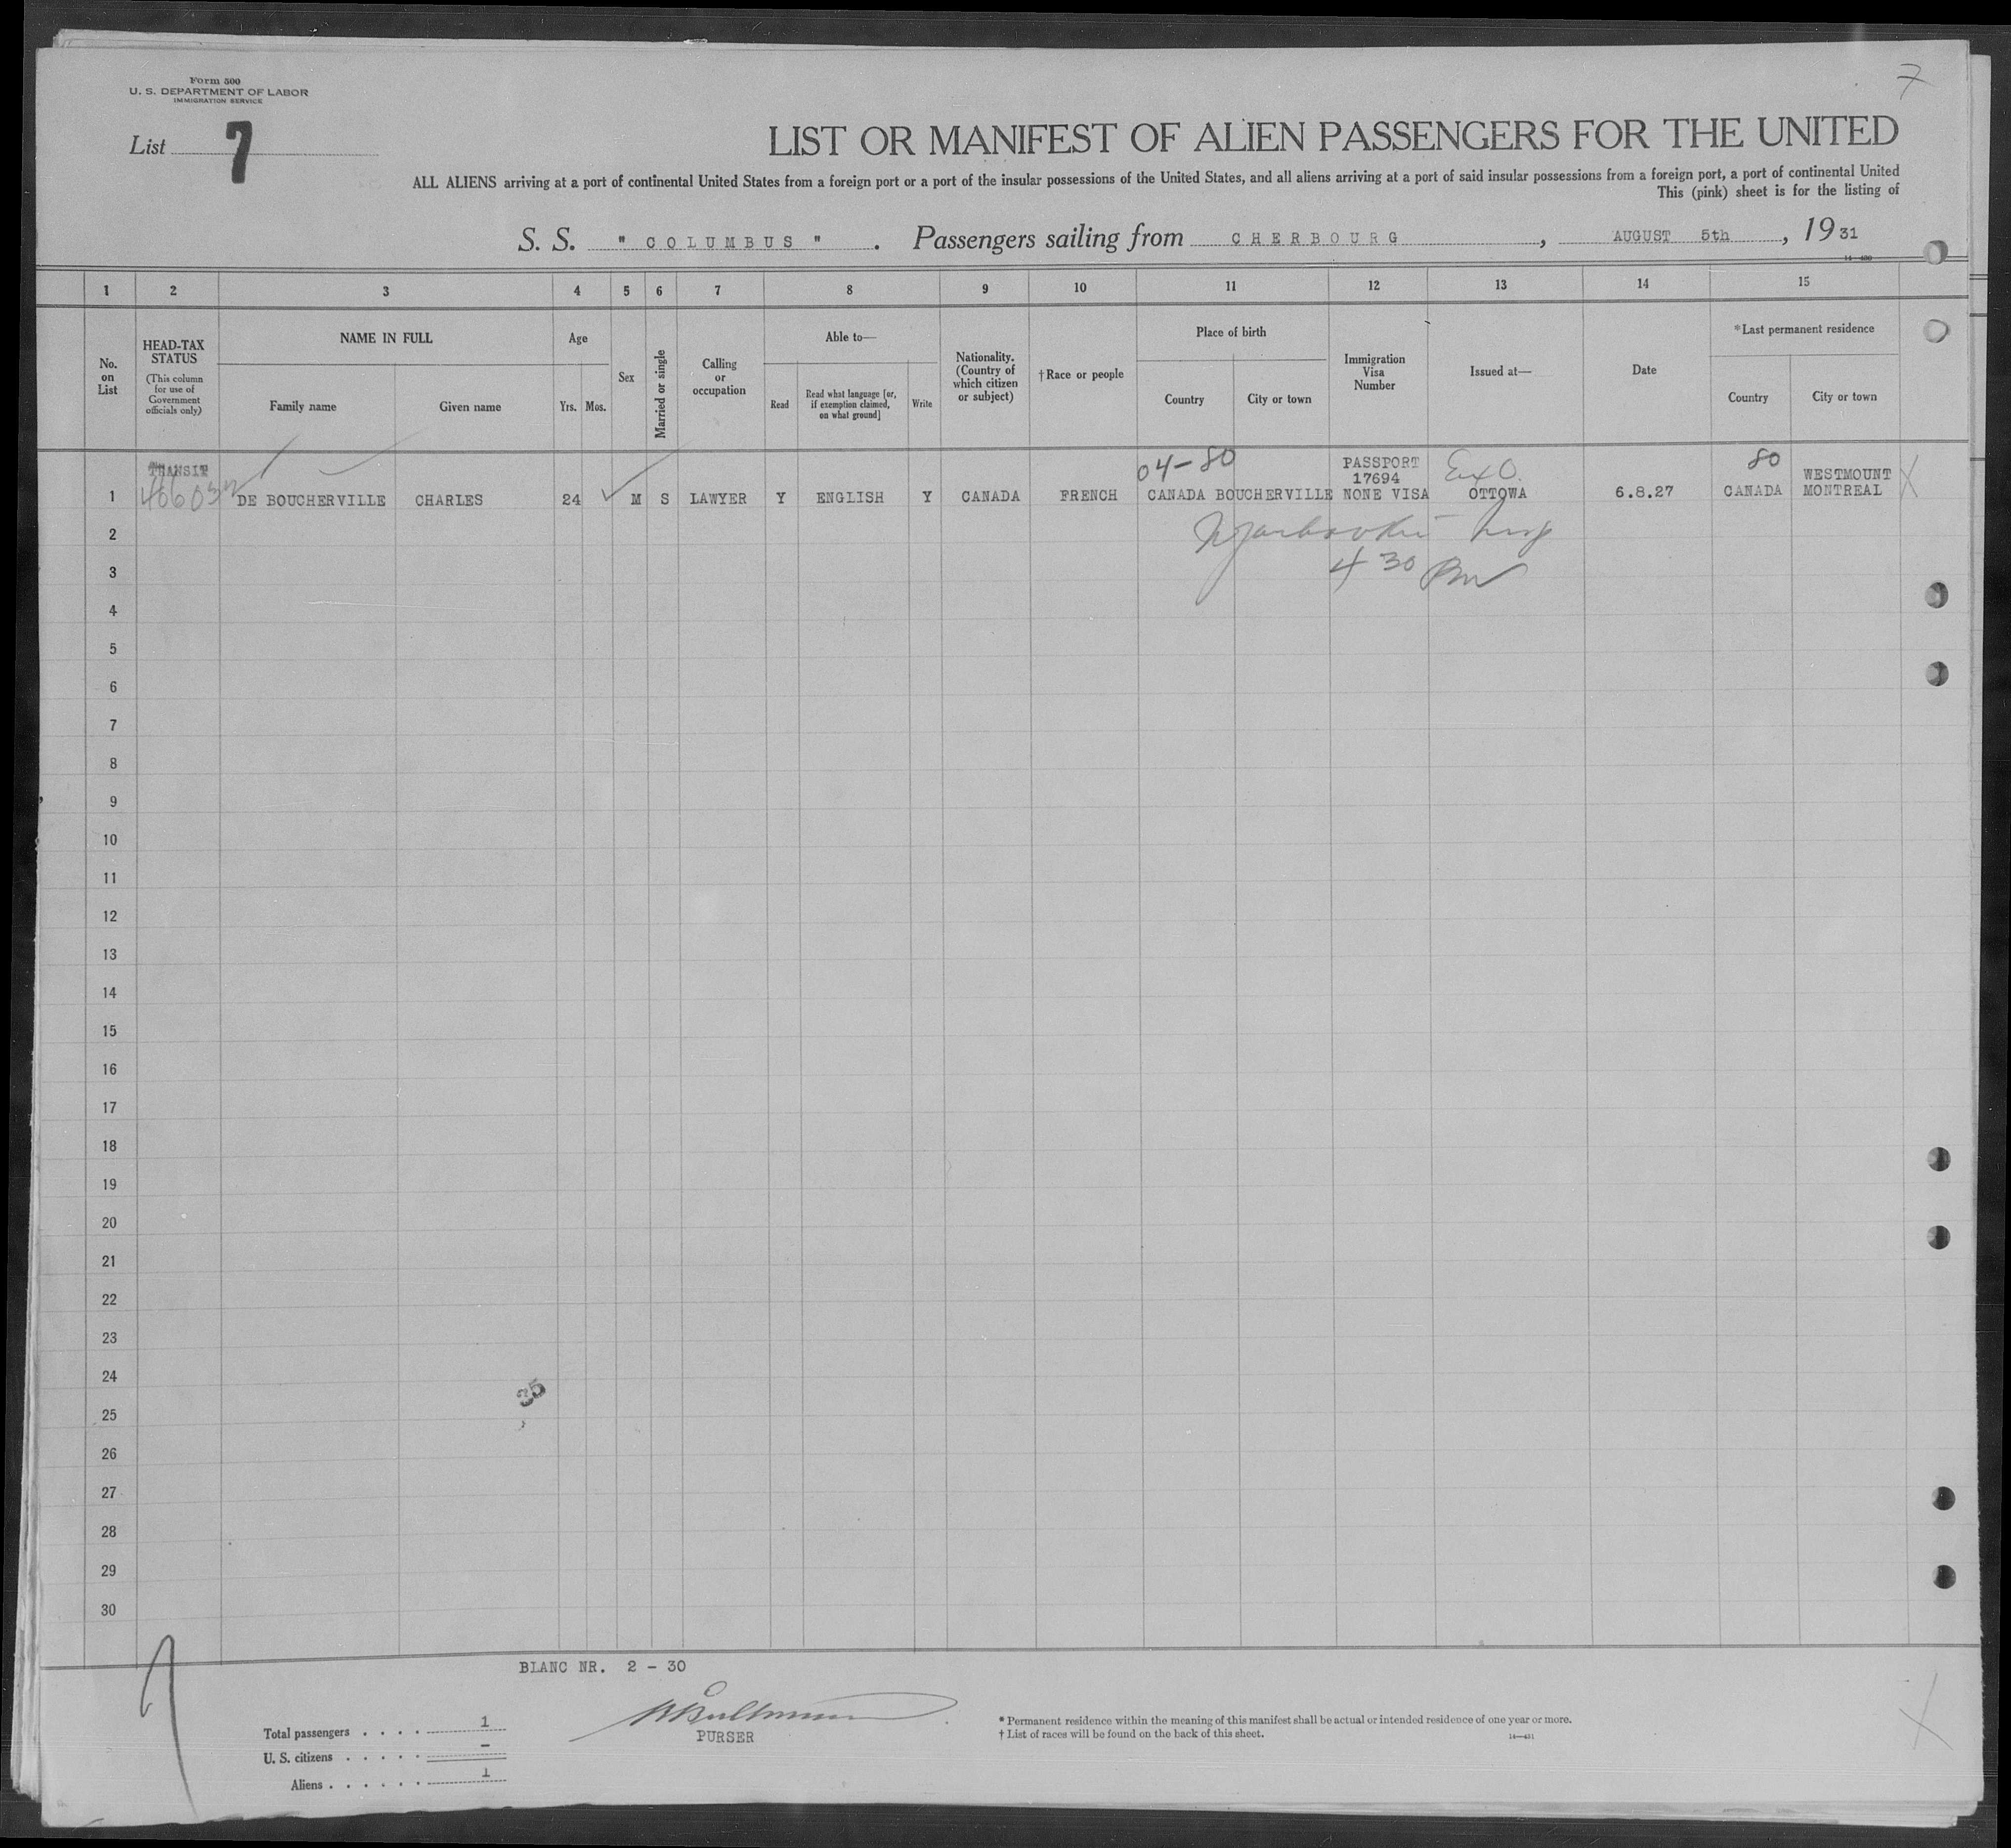 7
Form 500
U. S. DEPARTMENT OF LABOR
IMMIGRATION SERVICE
List 7
LIST OR MANIFEST OF ALIEN PASSENGERS FOR THE UNITED
ALL ALIENS arriving at a port of continental United States from a foreign port or a port of the insular possessions of the United States, and all aliens arriving at a port of said insular possessions from a foreign port, a port of continental United
This (pink) sheet is for the listing of
S. S. " COLUMBUS " . Passengers sailing from CHERBOURG , AUGUST 5th , 19 31
1 2 3 4 5 6 7 8 9 10 11 12 13 14 15
No. on List
HEAD-TAX STATUS
(This column for use of Government officials only)
NAME IN FULL
Family name Given name
Age
Yrs. Mos.
Sex
Married or single
Calling or occupation
Able to—
Read
Read what language [or, if exemption claimed, on what ground]
Write
Nationality. (Country of which citizen or subject)
†Race or people
Place of birth
Country City or town
Immigration Visa Number
Issued at—
Date
*Last permanent residence
Country City or town
TRANSIT 04-80 PASSPORT 80 WESTMOUNT
17694
1 DE BOUCHERVILLE CHARLES 24 M S LAWYER Y ENGLISH Y CANADA FRENCH CANADA BOUCHERVILLE NONE VISA OTTOWA 6.8.27 CANADA MONTREAL
2
3 4 30
4
5
6
7
8
9
10
11
12
13
14
15
16
17
18
19
20
21
22
23
24
35
25
26
27
28
29
30
BLANC NR. 2 - 30
Total passengers . . . . 1
U. S. citizens . . . . . -
Aliens . . . . . . 1
PURSER
* Permanent residence within the meaning of this manifest shall be actual or intended residence of one year or more.
† List of races will be found on the back of this sheet.
14—431